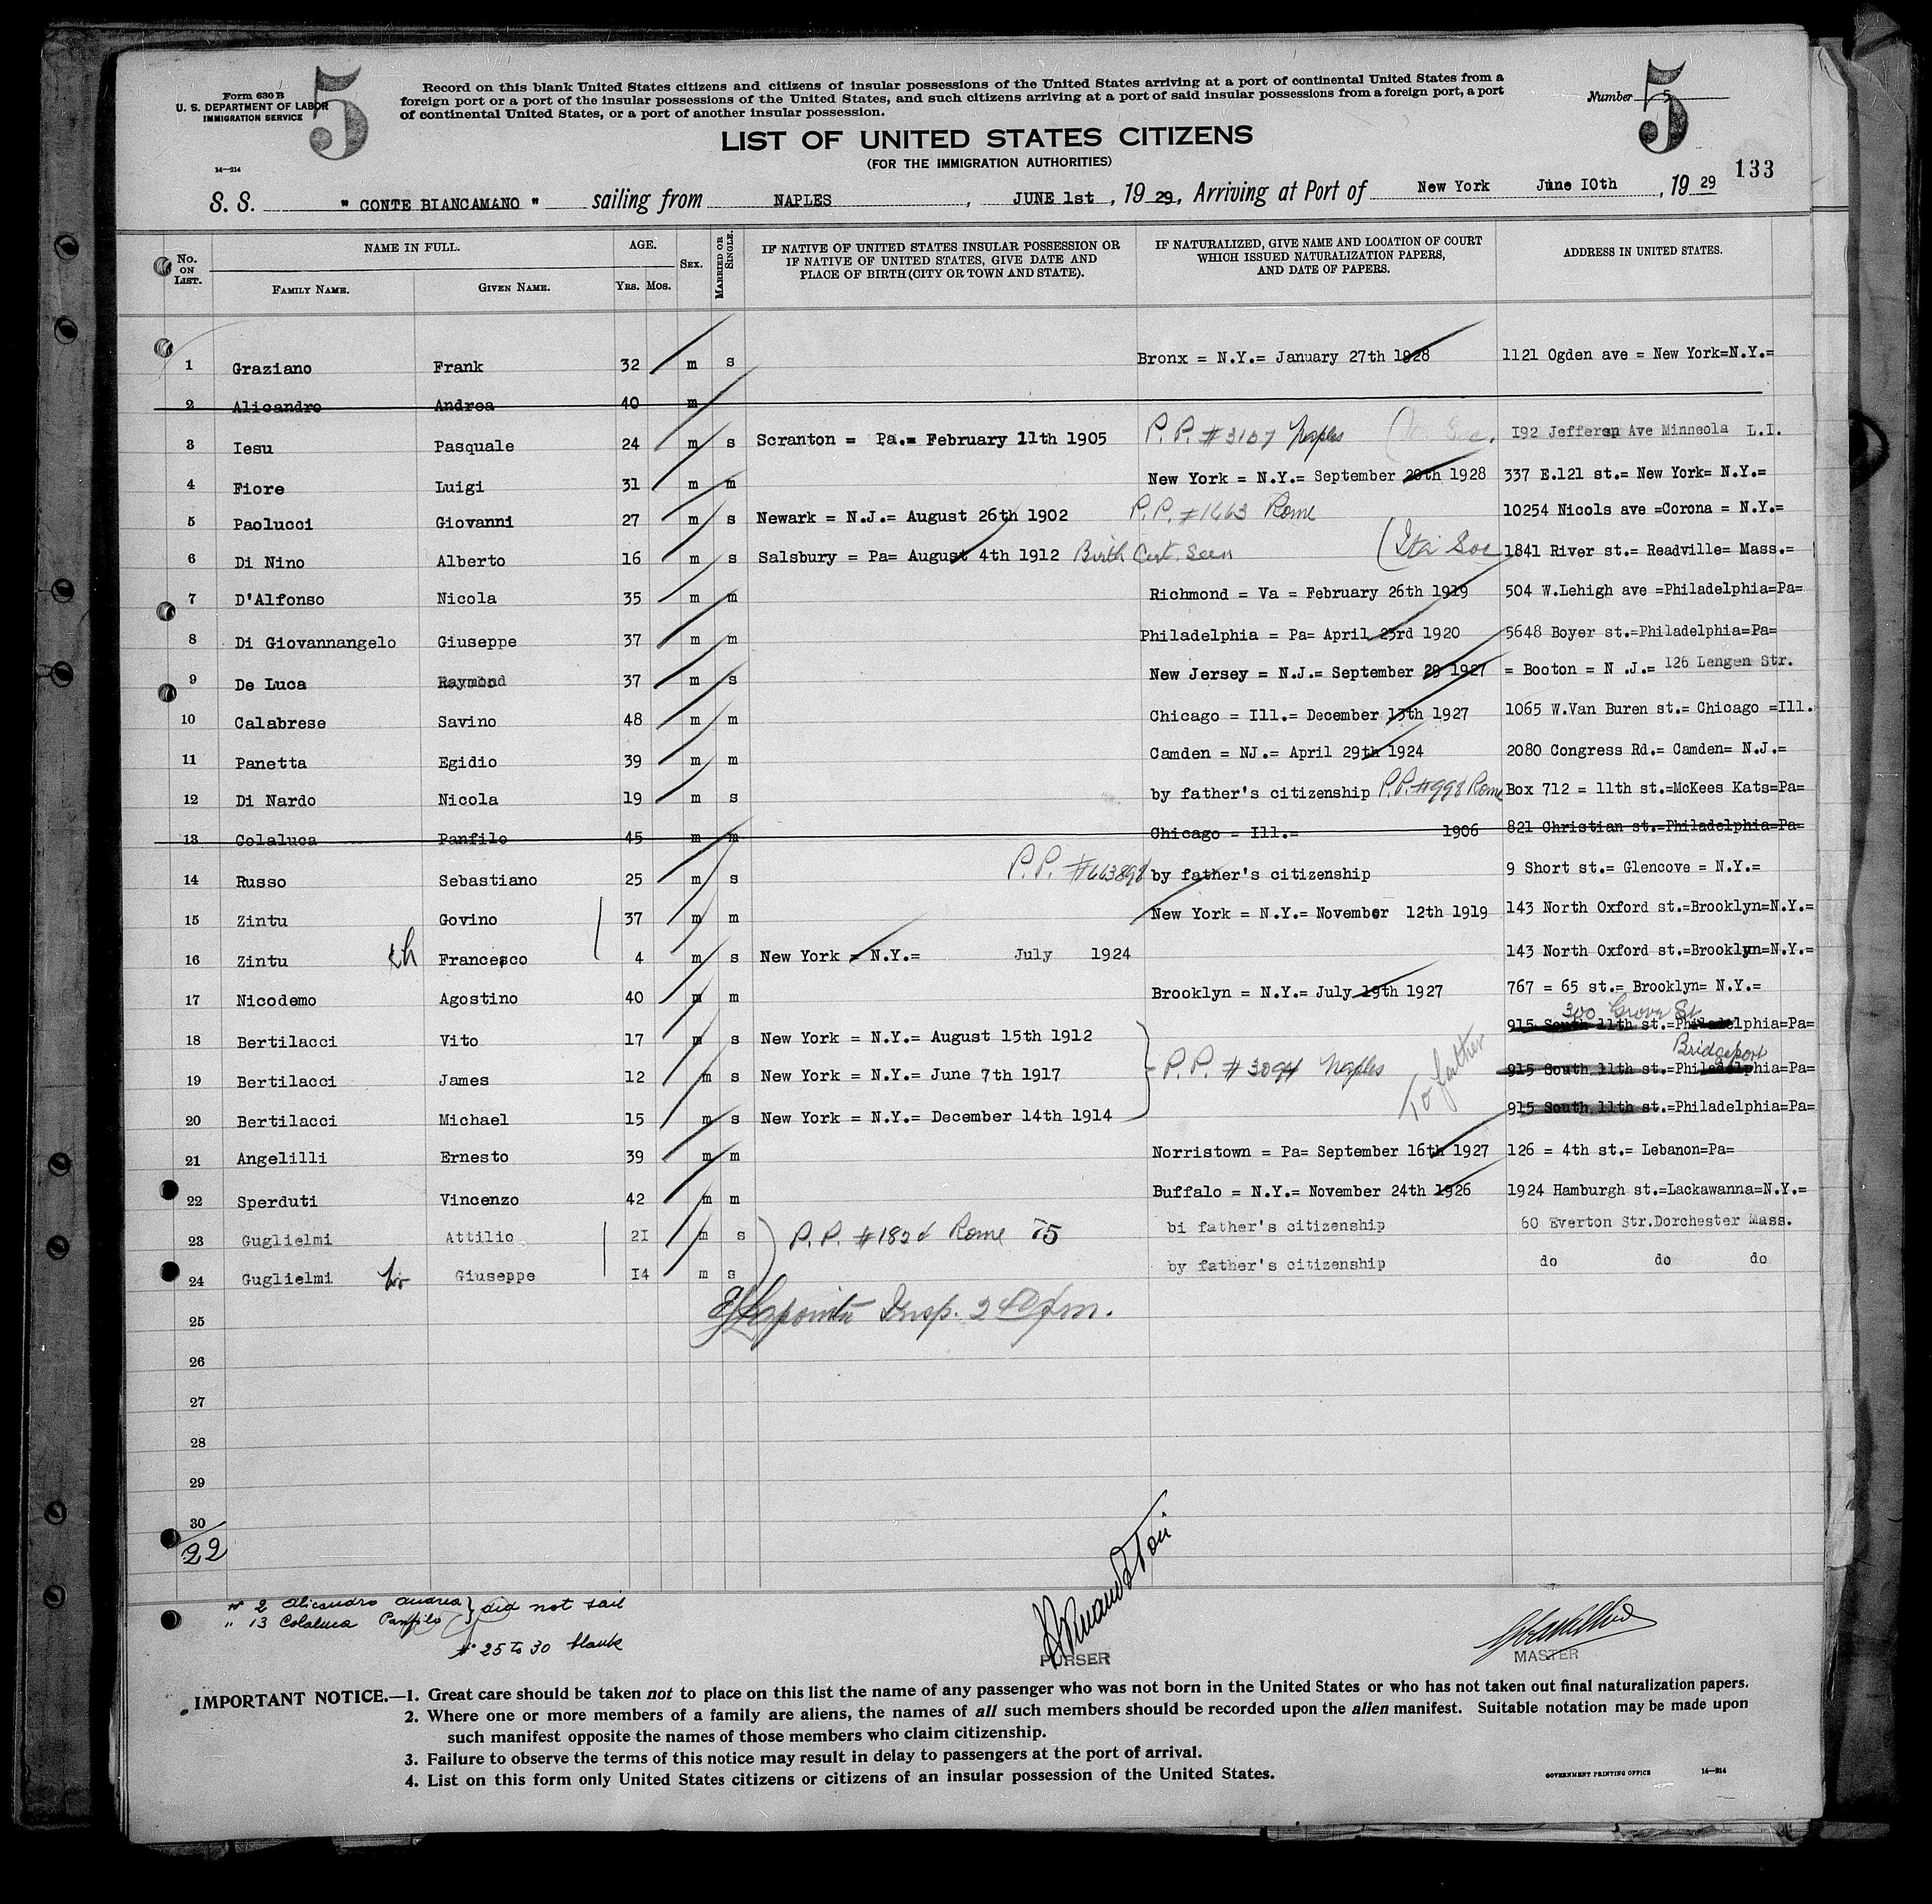 Form 630 B
U. S. DEPARTMENT OF LABOR
IMMIGRATION SERVICE
5
14—214
Record on this blank United States citizens and citizens of insular possessions of the United States arriving at a port of continental United States from a
foreign port or a port of the insular possessions of the United States, and such citizens arriving at a port of said insular possessions from a foreign port, a port
of continental United States, or a port of another insular possession.
Number 5
5
LIST OF UNITED STATES CITIZENS
(FOR THE IMMIGRATION AUTHORITIES)
133
S. S. " CONTE BIANCAMANO " sailing from NAPLES, JUNE 1st, 1929, Arriving at Port of New York June IOth, 1929
No. ON LIST. NAME IN FULL. FAMILY NAME. GIVEN NAME. AGE. YRS. MOS. SEX. MARRIED OR SINGLE. IF NATIVE OF UNITED STATES INSULAR POSSESSION OR IF NATIVE OF UNITED STATES, GIVE DATE AND PLACE OF BIRTH (CITY OR TOWN AND STATE). IF NATURALIZED, GIVE NAME AND LOCATION OF COURT WHICH ISSUED NATURALIZATION PAPERS, AND DATE OF PAPERS. ADDRESS IN UNITED STATES.
1 Graziano Frank 32 m s Bronx = N.Y.= January 27th 1928 1121 Ogden ave = New York=N.Y.=
2 Alicandro Andrea 40 m
3 Iesu Pasquale 24 m s Scranton = Pa.= February 11th 1905 P.P. #3107 Naples I92 Jefferson Ave Minneola L.I.
4 Fiore Luigi 31 m m New York = N.Y.= September 20th 1928 337 E.121 st.= New York= N.Y.=
5 Paolucci Giovanni 27 m s Newark = N.J.= August 26th 1902 P.P. #1663 Rome 10254 Nicols ave =Corona = N.Y.=
6 Di Nino Alberto 16 m s Salsbury = Pa= August 4th 1912 Birth Cert. Seen (Ita Soc 1841 River st.= Readville= Mass.=
7 D'Alfonso Nicola 35 m m Richmond = Va = February 26th 1919 504 W.Lehigh ave =Philadelphia=Pa=
8 Di Giovannangelo Giuseppe 37 m m Philadelphia = Pa= April 23rd 1920 5648 Boyer st.=Philadelphia=Pa=
9 De Luca Raymond 37 m s New Jersey = N.J.= September 29 1927 = Booton = N .J.= 126 Langen Str.
10 Calabrese Savino 48 m m Chicago = Ill.= December 13th 1927 1065 W.Van Buren st.= Chicago =Ill.
11 Panetta Egidio 39 m m Camden = NJ.= April 29th 1924 2080 Congress Rd.= Camden= N.J.=
12 Di Nardo Nicola 19 m s by father's citizenship P.P. #998 Rome Box 712 = 11th st.=McKees Kats=Pa=
13 Colaluca Panfilo 45 m m Chicago = Ill.= 1906 821 Christian st.=Philadelphia=Pa=
14 Russo Sebastiano 25 m s P.P. #663898 by father's citizenship 9 Short st.= Glencove = N.Y.=
15 Zintu Govino 37 m m New York = N.Y.= November 12th 1919 143 North Oxford st.=Brooklyn=N.Y.=
16 Zintu ch Francesco 4 m s New York = N.Y.= July 1924 143 North Oxford st.=Brooklyn=N.Y.=
17 Nicodemo Agostino 40 m m Brooklyn = N.Y.= July 19th 1927 767 = 65 st.= Brooklyn= N.Y.=
300 Grove St
18 Bertilacci Vito 17 m s New York = N.Y.= August 15th 1912 915 South 11th st.=Philadelphia=Pa=
Bridgeport
19 Bertilacci James 12 m s New York = N.Y.= June 7th 1917 P.P. #3094 Naples To father 915 South 11th st.=Philadelphia=Pa=
20 Bertilacci Michael 15 m s New York = N.Y.= December 14th 1914 915 South 11th st.=Philadelphia=Pa=
21 Angelilli Ernesto 39 m m Norristown = Pa= September 16th 1927 126 = 4th st.= Lebanon=Pa=
22 Sperduti Vincenzo 42 m m Buffalo = N.Y.= November 24th 1926 1924 Hamburgh st.=Lackawanna=N.Y.=
23 Guglielmi Attilio 2I m s P.P. #182d Rome 75 bi father's citizenship 60 Everton Str.Dorchester Mass.
24 Guglielmi br Giuseppe I4 m s by father's citizenship do do do
25 Insp.
26
27
28
29
30
22
" 2 Alicandro Andrea } did not sail
" 13 Colaluca Panfilo
# 25 to 30 blank
PURSER
MASTER
IMPORTANT NOTICE.—1. Great care should be taken not to place on this list the name of any passenger who was not born in the United States or who has not taken out final naturalization papers.
2. Where one or more members of a family are aliens, the names of all such members should be recorded upon the alien manifest. Suitable notation may be made upon
such manifest opposite the names of those members who claim citizenship.
3. Failure to observe the terms of this notice may result in delay to passengers at the port of arrival.
4. List on this form only United States citizens or citizens of an insular possession of the United States.
GOVERNMENT PRINTING OFFICE 14—214